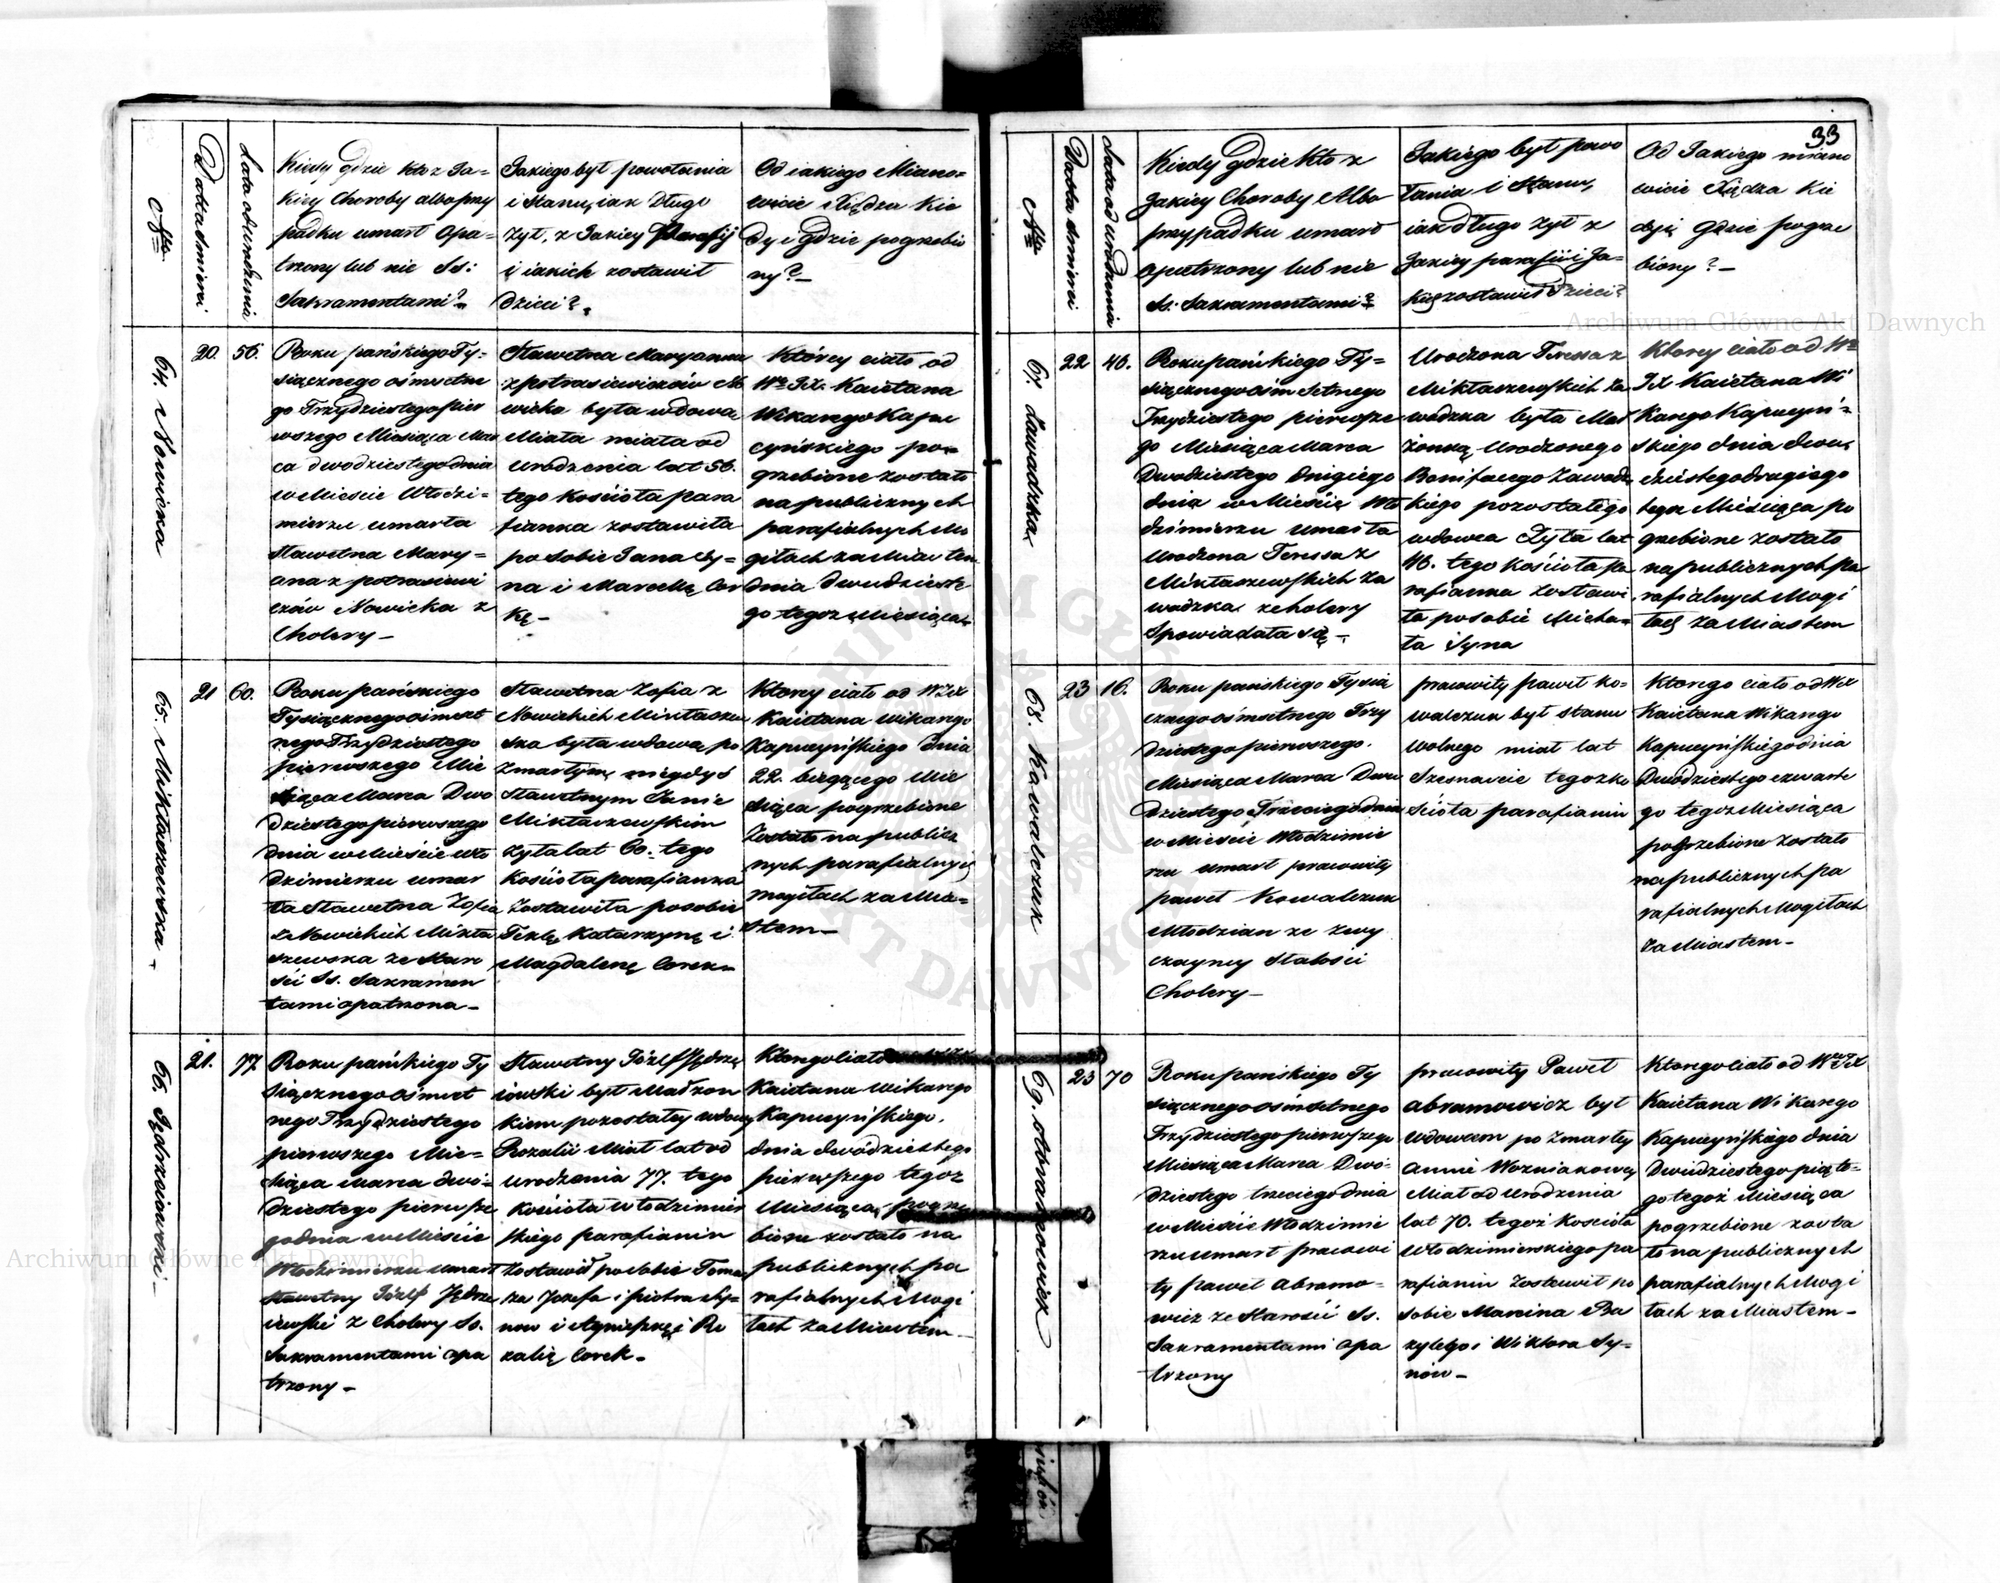 33
Nro
Data śmierci
Lata od urodzenia
Kiedy gdzie kto z Ja=
kiey Choroby albo przy
padku umarł opa=
trzony lub nie SS:
Sakramentami?
Jakiego był powołania
i Stanu, iak Długo
żył, z Jakiey Parafij
i iakich zostawił
dzieci?
Od iakiego Miano=
wicie Xiędza Kie
dy i gdzie pogrzebio
ny?
64. Nowicka
20.
56.
Roku pańskiego Ty=
siącznego ośmsetne
go Trzydziestego pier
wszego Miesiąca Mar
ca dwódziestego dnia
w Mieście Włodzi=
mierzu umarła
Sławetna Mary=
anna z potrasiewi
czów Nowicka z
Cholery
Sławetna Maryanna
z potrasiewiczów No
wicka była wdowa
Miała miała od
urodzenia lat 56.
tego Kościoła para
fianka zostawiła
po sobie Jana Sy=
na i Marcellę Cór
kę
Którey ciało od
Wo JX. Kaietana
Wikarego Kapu
cyńskiego po=
grzebione zostało
na publicznych
parafialnych Mo
giłach za Miastem
dnia Dwudzieste
go tegoż Miesiąca
65. Mikłaszewska
21
60.
Roku pańskiego
Tysiącznego ośmset
nego Trzydziestego
pierwszego Mie
siąca Marca Dwó
dziestego pierwszego
dnia w Mieście Wło
dzimierzu umar
ła Sławetna Zofia
z Nowickich Mikła
szewska ze Staro
ści SS. Sakramen
tami opatrzona
Sławetna Zofia z
Nowickich Mikłaszew
ska była wdową po
zmarłym niegdyś
Sławetnym Janie
Mikłaszewskim
żyła lat 60. tego
Kościoła parafianka
Zostawiła po sobie
Teklę, Katarzynę i
Magdalenę Córek
Którey ciało od W JX
Kaietana Wikarego
Kapucyńskiego dnia
22. bieżącego Mie
siąca pogrzebione
Zostało na publicz
nych parafialnych
mogiłach za Mia=
stem
66. Jędrzeiowski
21.
77
Roku pańskiego Ty
siącznego ośmset
nego Trzydziestego
pierwszego Mie=
siąca Marca dwó=
dziestego pierwsze
go dnia w Mieście
Włodzimierzu umarł
Sławetny Józef Jędrze
iowski z Cholery SS.
Sakramentami opa
trzony
Sławetny Józef Jędrze
iowski był Małżon
kiem pozostałey wdowy
Rozalii Miał lat od
urodzenia 77. tego
Kościoła włodzimier
skiego parafianin
Zostawił po sobie Toma
sza Jozefa i piotra Sy=
now i Agnieszkę i Ro
zalię Corek
Którego ciało
Kaietana Wikarego
Kapucyńskiego.
dnia dwódziestego
pierwszego tegoż
Miesiąca, pogrze
bione zostało na
publicznych pa
rafialnych Mogi
łach za Miastem
Nro
Data śmierci
Lata od urodzenia
Kiedy gdzie Kto z
Jakiey Choroby Albo
przypadku umarł
opatrzony lub nie
SS. Sakramentami?
Jakiego był powo
łania i Stanu,
iak długo żył z
Jakiey parafii i Ja=
kich zostawił Dzieci?
Od Jakiego miano
wicie Xiędza Kie
dy i Gdzie pogrze
biony?
67. Zawadzka
22
46.
Roku pańskiego Ty=
siącznego ośm Setnego
Trzydziestego pierwsze
go Miesiąca Marca
Dwodziestego drugiego
dnia w Mieście Wło
dzimierzu umarła
Urodzona Teressa z
Mikłaszewskich Za
wadzka z cholery
Spowiadała się
Urodzona Teressa z
Mikłaszewskich Za
wadzka była Mał
żonką Urodzonego
Bonifacego Zawadz
kiego pozostałego
wdowca Żyła lat
46. tego Kościoła pa
rafianka Zostawi
ła po sobie Micha=
ła Syna
Którey ciało od Wo
JX Kaietana Wi
karego Kapucyń=
skiego dnia dwu
dziestego drugiego
tegoż Miesiąca po
grzebione zostało
na publicznych pa
rafialnych Mogi
łach za Miastem
68. Kowalczuk
23
16.
Roku pańskiego Tysią
cznego ośmsetnego Trzy
dziestego pierwszego.
Miesiąca Marca Dwu
dziestego Trzeciego dnia
w Mieście Włodzimie
rzu umarł pracowity
paweł Kowalczuk
Młodzian ze zwy
czayney Słabości
Cholery
pracowity paweł Ko=
walczuk był stanu
wolnego miał lat
Szesnaście tegoż Ko
ścioła parafianin
Którego ciało od W JX
Kaietana Wikarego
Kapucyńskiego dnia
Dwódziestego czwarte
go tegoż Miesiąca
pogrzebione zostało
na publicznych pa
rafialnych Mogiłach
za Miastem
69. Abramowicz
23
70
Roku pańskiego Ty
siącznego ośmsetnego
Trzydziestego pierwszego
Miesiąca Marca Dwó=
dziestego trzeciego dnia
w Mieście Włodzimie
rzu umarł pracowi
ty paweł Abramo=
wicz ze Starości SS.
Sakramentami opa
trzony
pracowity Paweł
Abramowicz był
Wdowcem po zmarłey
Annie Wozniakowey
Miał od urodzenia
lat 70. tegoż Kościoła
Włodzimierskiego pa
rafianin Zostawił po
sobie Marcina Ba
zylego i Wiktora Sy=
nów
Którego ciało od Wo JX
Kaietana Wikarego
Kapucyńskiego dnia
Dwudziestego piąte=
go tegoż Miesiąca
pogrzebione zosta
ło na publicznych
parafialnych Mogi
łach za Miastem
Archiwum Główne Akt Dawnych
Archiwum Główne Akt Dawnych